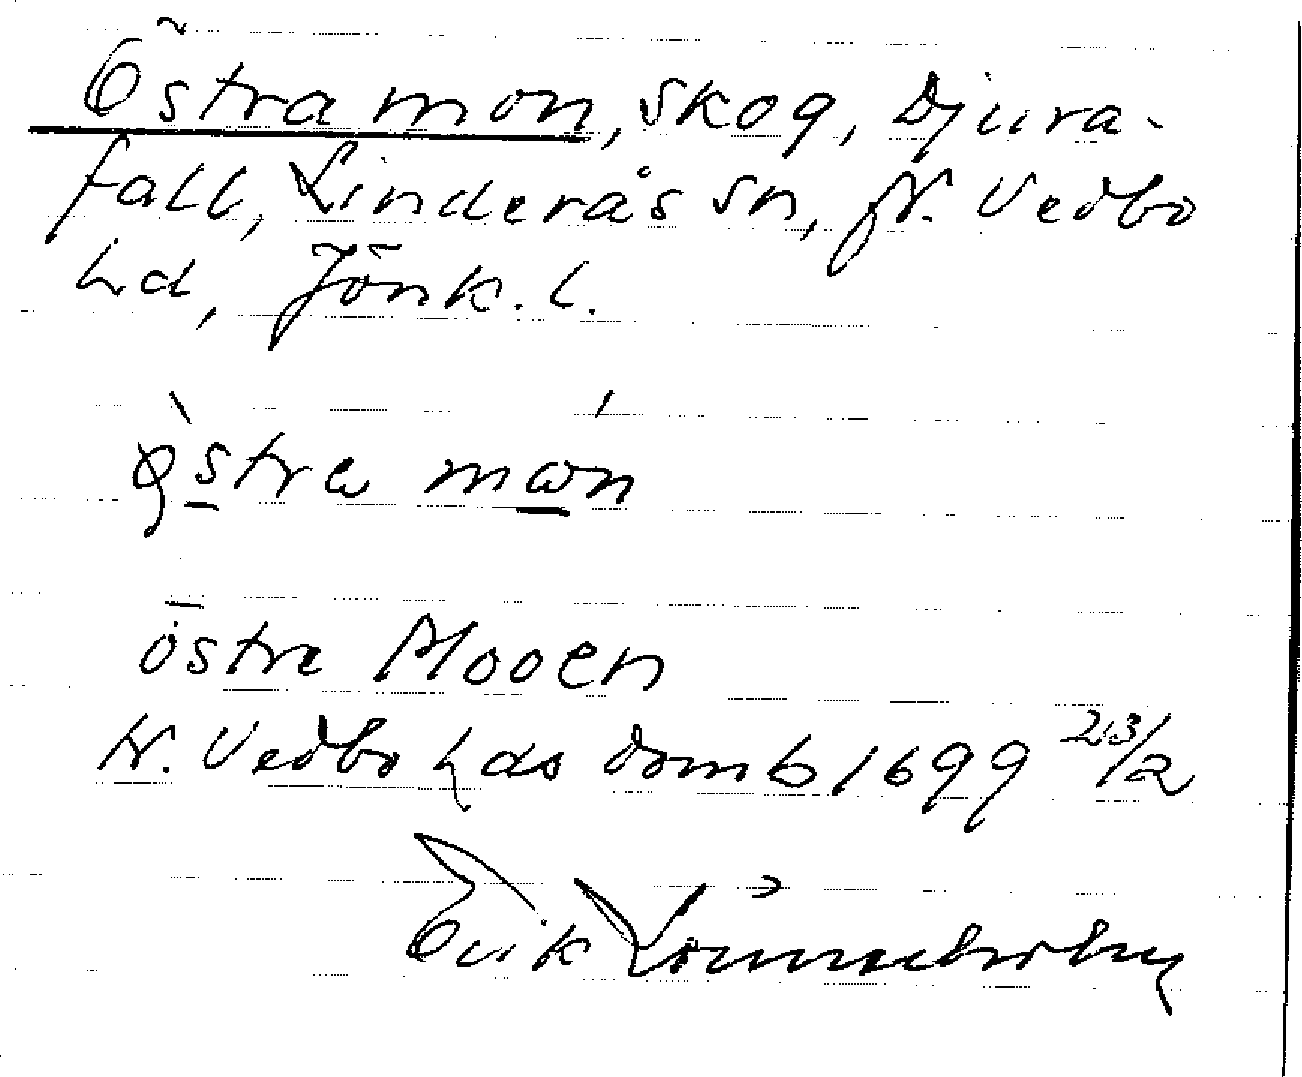 Östra mon, skog, Djura-
fall, Linderås sn, N. Vedbo
hd, Jönk. l.
östra mon
östra Mooen
N. Vedbo hds domb 1699 23/2
Erik